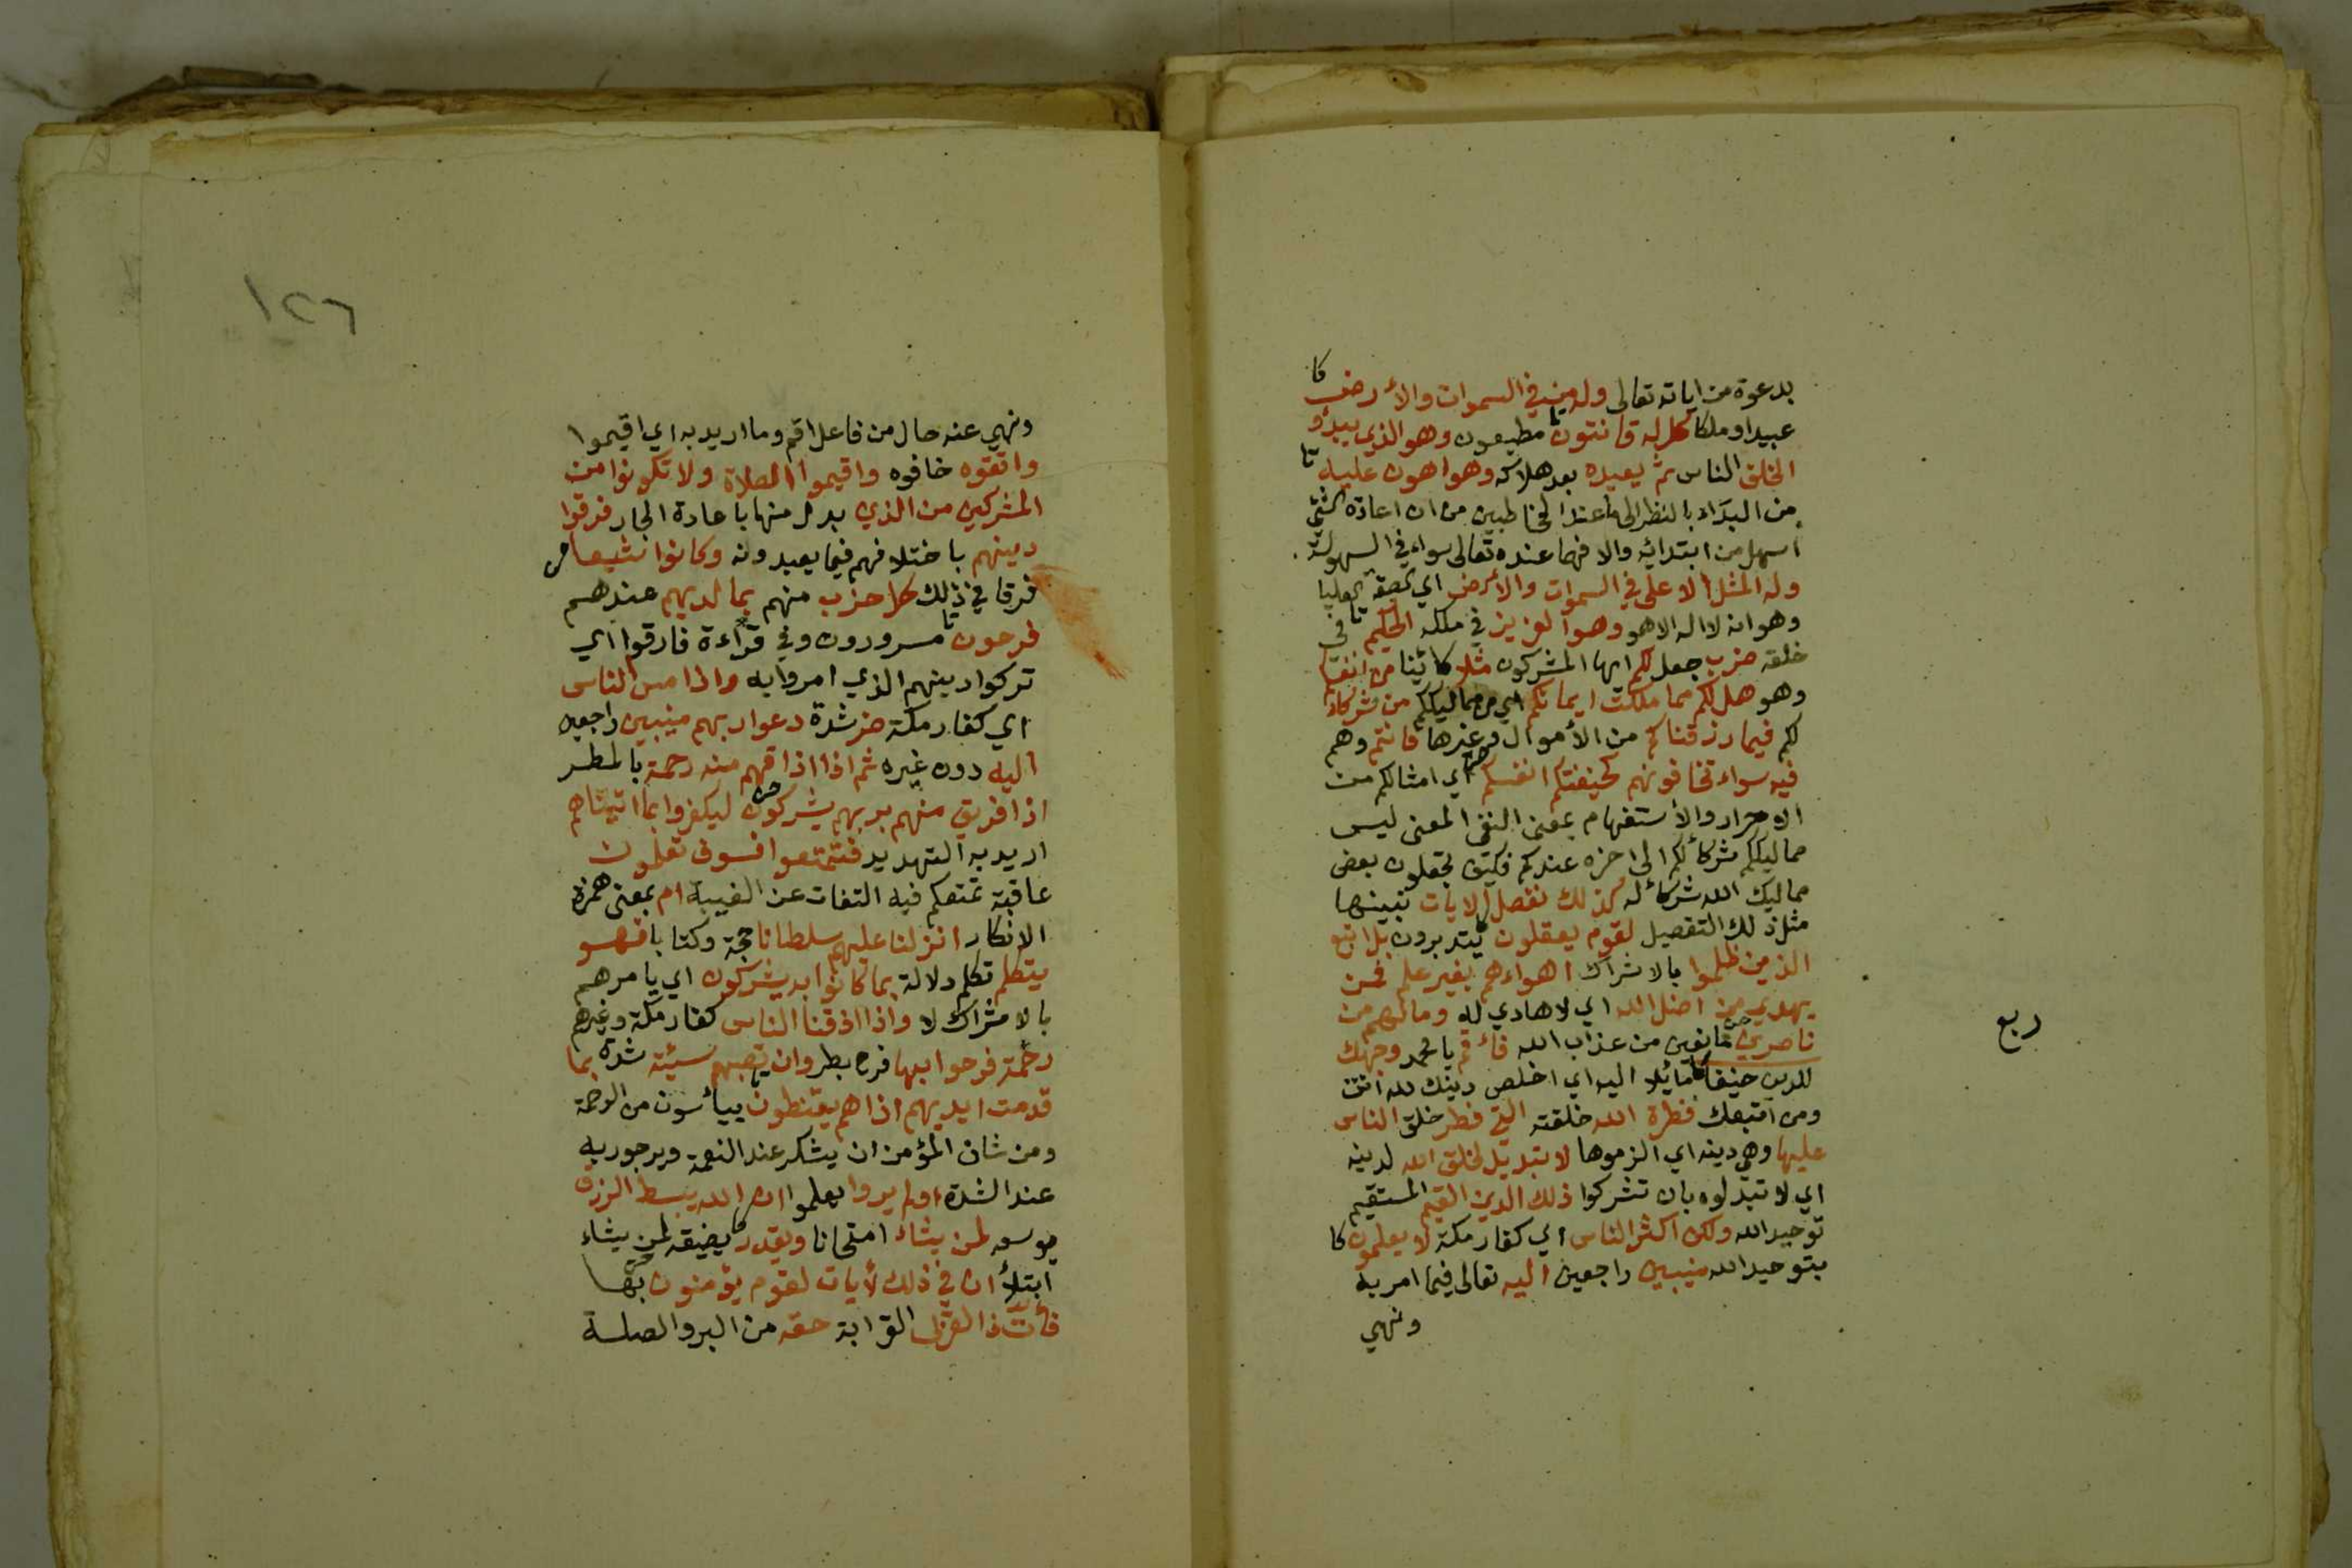 بدعوة من اياته تعالى وله من في السموات والأرض
عبيدا وملكا كل له قانتون مطيعون وهو الذي يبدؤ
الخلق الناس ثم يعيده بعد هلاكه وهو اهون عليه
من البداء بالنظر الى ما عند المخاطبين من ان اعادة الشئ
اسهل من ابتدائه والا فهما عنده تعالى سواء في السهولة
وله المثل الاعلى في السموات والأرض اي الصفة العليا
وهو انه لا اله الا هو وهو العزيز في ملكه الحكيم في
خلقه ضرب جعل لكم ايها المشركون مثلا كائنا من انفسكم
وهو هل لكم مما ملكت ايمانكم اي من مماليككم من شركاء
لكم فيما رزقناكم من الأموال وغيرها فانتم وهم
فيه سواء تخافونهم كخيفتكم انفسكم اي امثالكم من
الاحرار والأستفهام بمعنى النفي المعنى ليس
مماليككم شركاء لكم الى اخره عندكم فكيف تجعلون بعض
مماليك الله شركاء له كذلك نفصل الايات نبينها
مثل ذلك التفصيل لقوم يعقلون يتدبرون بل اتبع
الذين ظلموا بالاشراك اهواءهم بغير علم فمن
يهدي من اضل الله اي لا هادي له وما لهم من
ناصرين مانعين من عذاب الله فأقم يا محمد وجهك
للدين حنيفا مائلا اليه اي اخلص دينك لله انت
ومن اتبعك فطرة الله خلقته التي فطر خلق الناس
عليها وهي دينه اي الزموها لا تبديل لخلق الله لدينه
اي لا تبدلوه بان تشركوا ذلك الدين القيم المستقيم
توحيد الله ولكن اكثر الناس اي كفار مكة لا يعلمون
بتوحيد الله منيبين راجعين اليه تعالى فيما امر به
ونهي
ربع
١٢٦
ونهي عنه حال من فاعل اقم وما اريد به اي اقيموا
واتقوه خافوه واقيموا الصلاة ولا تكونوا من
المشركين من الذي بدل منها باعادة الجار فرقوا
دينهم باختلافهم فيما يعبدونه وكانوا شيعا
فرقا في ذلك كل حزب منهم بما لديهم عندهم
فرحون مسرورون وفي قراءة فارقوا اي
تركوا دينهم الذي امروا به واذا مس الناس
اي كفار مكة ضر شدة دعوا ربهم منيبين راجعين
اليه دون غيره ثم اذا اذاقهم منه رحمة بالمطر
اذا فريق منهم بربهم يشركون ليكفروا بما اتيناهم
اريد به التهديد فتمتعوا فسوف تعلمون
عاقبة تمتعكم فيه التفات عن الغيبة ام بمعنى همزة
الانكار انزلنا عليهم سلطانا حجة وكتابا فهو
يتكلم تكلم دلالة بما كانوا به يشركون اي يامرهم
بالاشراك لا واذا اذقنا الناس كفار مكة وغيرهم
رحمة فرحوا بها فرح بطر وان تصبهم سيئة شدة بما
قدمت ايديهم اذا هم يقنطون ييأسون من الرحمة
ومن شان المؤمن ان يشكر عند النعمة ويرجو ربه
عند الشدة اولم يروا يعلموا ان الله يبسط الرزق
يوسعه لمن يشاء امتحانا ويقدر يضيقه لمن يشاء
ابتلأ ان في ذلك لأيات لقوم يؤمنون بها
فأت ذا القربى القرابة حقه من البر والصلة